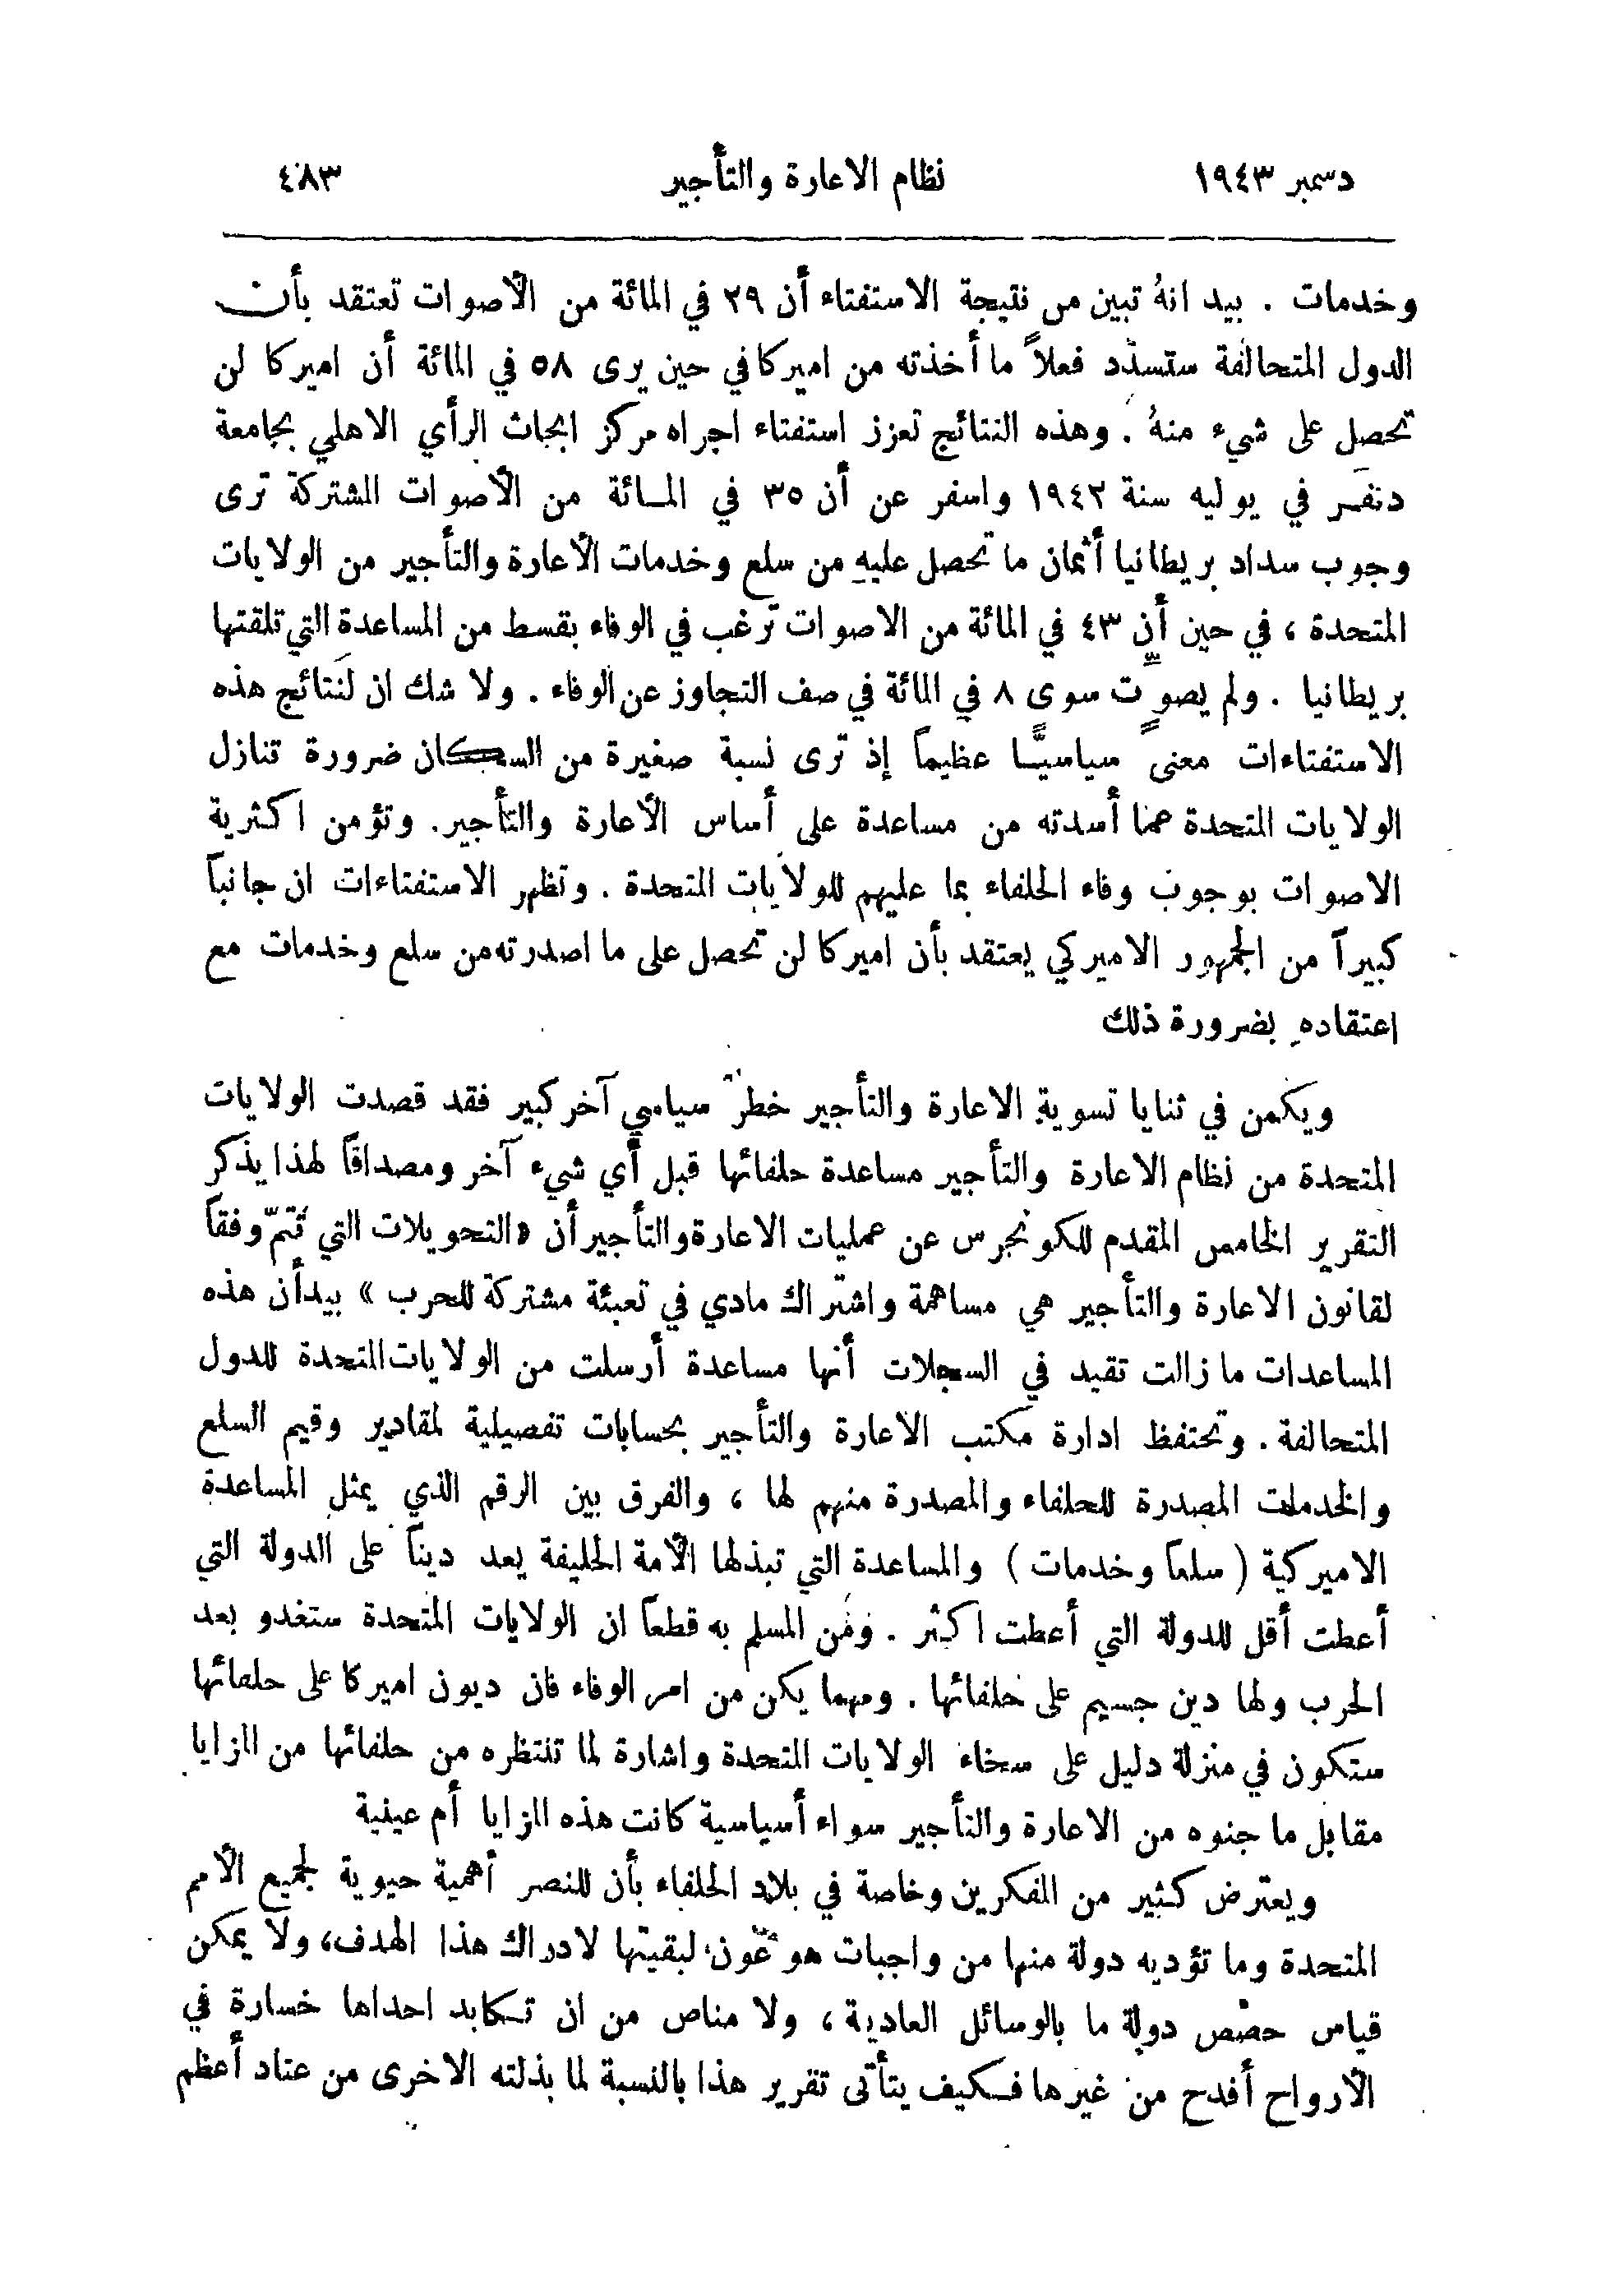 دسمبر ١٩٤٣
نظام الاعارة والتأجير
٤٨٣
وخدمات . بيد انهُ تبين من نتيجة الاستفتاء أن ٢٩ في المائة من الأصوات تعتقد بأن
الدول المتحالفة ستسدّد فعلاً ما أخذته من اميركا في حين يرى ٥٨ في المائة أن اميركا لن
تحصل على شيء منهُ . وهذه النتائج تعزز استفتاء اجراه مركز ابحاث الرأي الاهلي بجامعة
دنفر في يوليه سنة ١٩٤٢ واسفر عن أن ٣٥ في المائة من الأصوات المشتركة ترى
وجوب سداد بريطانيا أثمان ما تحصل عليهِ من سلع وخدمات الأعارة والتأجير من الولايات
المتحدة ، في حين أن ٤٣ في المائة من الاصوات ترغب في الوفاء بقسط من المساعدة التي تلقتها
بريطانيا . ولم يصوِّت سوى ٨ في المائة في صف التجاوز عن الوفاء . ولا شك ان لنتائج هذه
الاستفتاءات معنىً سياسيًّا عظيماً إذ ترى نسبة صغيرة من السكان ضرورة تنازل
الولايات المتحدة عما أسدته من مساعدة على أساس الأعارة والتأجير. وتؤمن اكثرية
الاصوات بوجوب وفاء الحلفاء بما عليهم للولايات المتحدة . وتظهر الاستفتاءات ان جانباً
كبيراً من الجمهور الاميركي يعتقد بأن اميركا لن تحصل على ما اصدرته من سلع وخدمات مع
اعتقاده بضرورة ذلك
ويكمن في ثنايا تسوية الاعارة والتأجير خطرٌ سياسي آخر كبير فقد قصدت الولايات
المتحدة من نظام الاعارة والتأجير مساعدة حلفائها قبل أي شيء آخر ومصداقاً لهذا يذكر
التقرير الخامس المقدم للكونجرس عن عمليات الاعارة والتأجير أن «التحويلات التي تتمّ وفقاً
لقانون الاعارة والتأجير هي مساهمة واشتراك مادي في تعبئة مشتركة للحرب » بيد أن هذه
المساعدات ما زالت تقيد في السجلات أنها مساعدة أرسلت من الولايات المتحدة للدول
المتحالفة . وتحتفظ ادارة مكتب الاعارة والتأجير بحسابات تفصيلية لمقادير وقيم السلع
والخدمات المصدرة للحلفاء والمصدرة منهم لها ، والفرق بين الرقم الذي يمثل المساعدة
الاميركية ( سلعاً وخدمات ) والمساعدة التي تبذلها الأمة الحليفة يعد ديناً على الدولة التي
أعطت أقل للدولة التي أعطت اكثر . ومن المسلم به قطعاً ان الولايات المتحدة ستغدو بعد
الحرب ولها دين جسيم على حلفائها . ومهما يكن من امر الوفاء فان ديون اميركا على حلفائها
ستكون في منزلة دليل على سخاء الولايات المتحدة واشارة لما تنتظره من حلفائها من المزايا
مقابل ما جنوه من الاعارة والتأجير سواء أسياسية كانت هذه المزايا أم عينية
ويعترض كثير من المفكرين وخاصة في بلاد الحلفاء بأن للنصر أهمية حيوية لجميع الأمم
المتحدة وما تؤديه دولة منها من واجبات هو عون لبقيتها لادراك هذا الهدف، ولا يمكن
قياس حصص دولة ما بالوسائل العادية ، ولا مناص من ان تكابد احداها خسارة في
الأرواح أفدح من غيرها فكيف يتأتى تقرير هذا بالنسبة لما بذلته الاخرى من عتاد أعظم